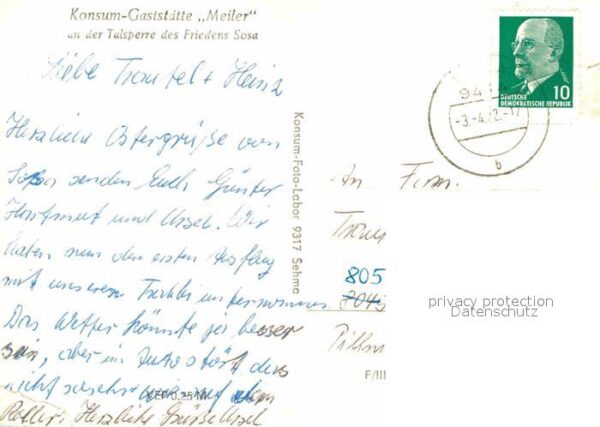 Konsum-Gaststätte „Meiler"
an der Talsperre des Friedens Sosa
Liebe Trautel + Heinz
Herzliche Ostergrüße von
Sosa senden Euch Günter
Hartmut und Ursel. Wir
haben nun den ersten Ausflug
mit unserem Trabbi unternommen.
Das Wetter könnte ja besser
sein, aber im Auto stört das
nicht so sehr
Herzliche Grüße Ursel
Konsum-Foto-Labor 9317 Sehma
10
DEUTSCHE
DEMOKRATISCHE REPUBLIK
94
-3.-4.
b
An Fam.
Trau
805
F/III
privacy protection
Datenschutz